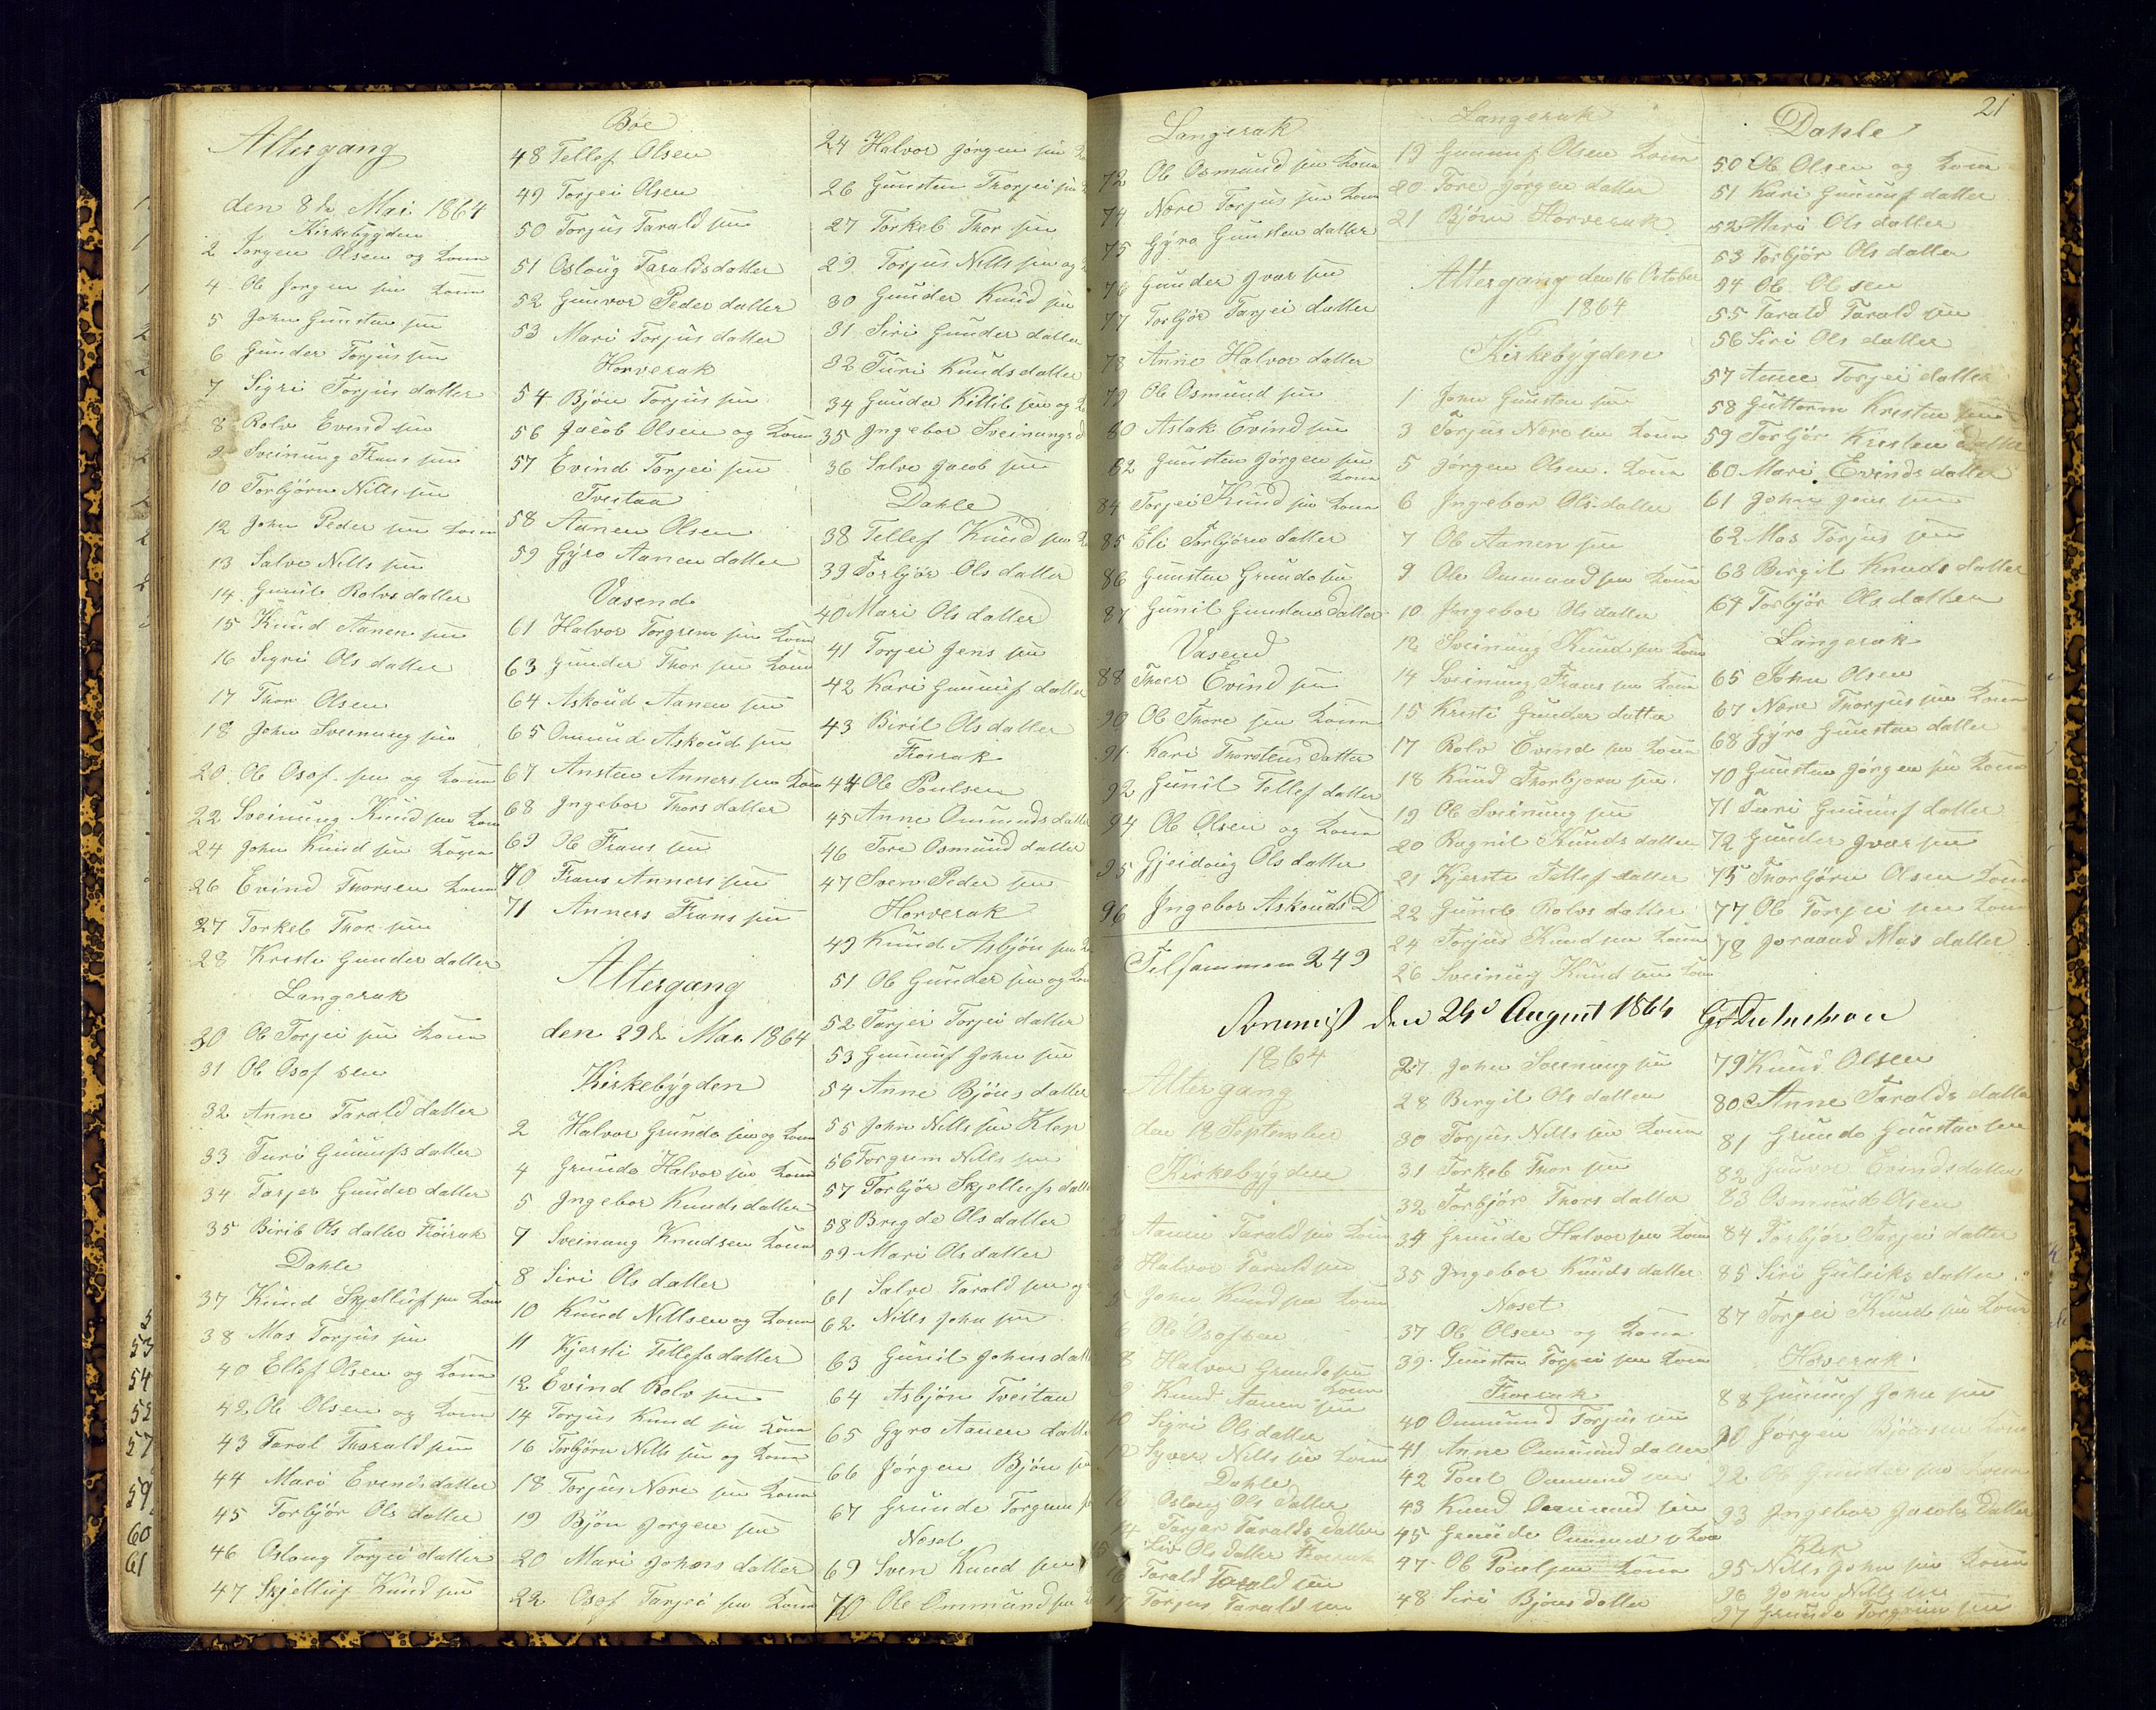 Altergang
den 8de Mai 1864
Kirkebygden
2 Jørgen Olsen og Kona
4 Ole Jørgen sen Kona
5 John Gunsten sen
6 Gunder Torjus sen
7 Sigri Torjus datter
8 Rolv Evind sen
9 Sveinung Frans sen
10 Torbjørn Nills sen
12 John Peder sen Kona
13 Salve Nills sen
14 Gunil Rolvs datter
15 Knud Aanen sen
16 Sigri Ols datter
17 Thor Olsen
18 John Sveinung sen
20 Ole Osof sen og Kona
22 Sveinung Knud sen Kona
24 John Knud sen
26 Evind Thorsen Kona
27 Torkel Thor sen
28 Kristi Gunder datter
Langerak
30 Ole Torjei sen Kona
31 Ole Osof sen
32 Anne Tarald datter
33 Turi Gunnufs datter
34 Torjer Gunder datter
35 Birit Ols datter Frøirak
Dahle
37 Knud Skjelluf sen Kona
38 Mas Torjus sen
40 Ellef Olsen og Kona
42 Ole Olsen og Kona
43 Taral Tharald sen
44 Mari Evends datter
45 Torbjør Ols datter
46 Oslaug Torjei datter
47 Skjelluf Knud sen
Bøe
48 Tellef Olsen
49 Torjei Olsen
50 Torjus Tarald sen
51 Osloug Taralds datter
52 Gunvor Peder datter
53 Mari Torjus datter
Horverak
54 Bjøn Torjus sen
56 Jacob Olsen og Kona
57 Evind Torjei sen
Tveitaa
58 Aanen Olsen
59 Gyro Aanen datter
Vasend
61 Halvor Torgrim sen Kona
63 Gunder Thor sen Kona
64 Askoud Aanen sen
65 Omund Askoud sen
67 Ansten Anners sen Kona
68 Ingebor Thors datter
69 Ole Frans sen
70 Frans Anners sen
71 Anners Frans sen
Altergang
den 29de Mai 1864
Kirkebygden
2 Halvor Grunde sen og Kona
4 Grunde Halvor sen Kona
5 Ingebor Knuds datter
7 Sveinung Knudsen Kona
8 Siri Ols datter
10 Knud Nillsen og Kona
11 Kjersti Tellefs datter
12 Evind Rolv sen
14 Torjus Knud sen Kona
16 Torbjørn Nills sen og Kona
18 Torjus Nere sen Kona
19 Bjøn Jorgen sen
20 Mari Johans datter
22 Osof Tarjei sen Kona
24 Halvor Jorgen sen
26 Gunsten Thorjei sen
27 Torkel Thor sen
29 Torjus Nills sen og
30 Gunder Knud sen
31 Siri Gunder datter
32 Turi Knuds datter
34 Gunder Kittil sen og
35 Ingebor Sveinungs d
36 Salve Jacob sen
Dahle
38 Tellef Knud sen
39 Torbjør Ols datter
40 Mari Ols datter
41 Torjei Jens sen
42 Kari Gunnuf datter
43 Birit Ols datter
Frøirak
44 Ole Poulsen
45 Anne Omunds datter
46 Tore Osmund datter
47 Sven Peder sen
Horverak
49 Knud Asbjøn sen
51 Ole Gunder sen og Kona
52 Tarjei Torjei datter
53 Gunnuf John sen
54 Anne Bjøns datter
55 John Nills sen Klep
56 Torgrim Nills sen
57 Torbjør Skjellufs datter
58 Brigde Ols datter
59 Mari Ols datter
61 Salve Tarald sen og
62 Nills John sen
63 Gunil Johns datter
64 Asbjøn Tveitaa
65 Gyro Aanen datter
66 Jørgen Bjøn sen
67 Grunde Torgrim
Neset
69 Sven Knud sen
70 Ole Ommund sen
21
Langerak
72 Ole Osmund sen Kona
74 Nere Torjus sen Kona
75 Gyro Gunsten datter
76 Gunder Ivar sen
77 Torbjør Tarjei datter
78 Anne Halvor datter
79 Ole Osmund sen
80 Aslak Evind sen
82 Gunsten Jørgen sen Kona
84 Torjei Knud sen Kona
85 Eli Torbjørn datter
86 Gunsten Grunde sen
87 Gunil Gunstens datter
Vasend
88 Thoer Evind sen
90 Ole Thore sen Kona
91 Kari Thorstens datter
92 Gunil Tellef datter
94 Ole Olsen og Kona
95 Gjeidoug Ols datter
96 Ingebor Askouds D
Tilsammen 249
1864
Altergang
den 18 September
Kirkebygden
2 Aanen Tarald sen Kona
3 Halvor Tarald sen
5 John Knud sen Kona
6 Ole Osofsen
8 Halvor Grunde sen Kona
9 Knud Aanen sen
10 Sigri Ols datter
12 Syver Nills sen Kona
Dahle
13 Osloug Ols datter
14 Tarjer Taralds datter
15 Siri Ols datter Frøirak
16 Tarald Tarald sen
17 Torjus Tarald sen
Langerak
19 Gunnuf Olsen Kona
20 Tore Jørgen datter
21 Bjørn Horverak
Altergang den 16 October
1864
Kirkebygden
1 John Gunsten sen
3 Torjus Nere sen Kona
5 Jørgen Olsen Kona
6 Ingebor Ols datter
7 Ole Aanen sen
9 Ole Ommund sen Kona
10 Ingebor Ols datter
12 Sveinung Knud sen Kona
14 Sveinung Frans sen Kona
15 Kristi Gunder datter
17 Rolv Evind sen Kona
18 Knud Thorbjorn sen
19 Ole Sveinung sen
20 Ragnil Knuds datter
21 Kjersti Tellef datter
22 Gunil Rolvs datter
24 Torjus Knud sen Kona
26 Sveinung Knud sen Kona
den 24d August 1864
27 John Sveinung sen
28 Bergit Ols datter
30 Torjus Nills sen Kona
31 Torkel Thor sen
32 Torbjør Thors datter
34 Grunde Halvor sen Kona
35 Ingebor Knuds datter
Neset
37 Ole Olsen og Kona
39 Gunsten Torjei sen Kona
Frøirak
40 Ommund Torjus sen
41 Anne Ommund datter
42 Poul Ommund sen
43 Knud Ommund sen
45 Grunde Ommund s Kona
47 Ole Poulsen Kona
48 Siri Bjøns datter
Dahle
50 Ole Olsen og Kona
51 Kari Gunnuf datter
52 Mari Ols datter
53 Torbjør Ols datter
54 Ole Olsen
55 Tarald Tarald sen
56 Siri Ols datter
57 Anne Torjei datter
58 Guttorm Kristen sen
59 Torbjør Kristen datter
60 Mari Evinds datter
61 John Jens sen
62 Mas Torjus sen
63 Bergit Knuds datter
64 Torbjør Ols datter
Langerak
65 John Olsen
67 Nere Thorjus sen Kona
68 Gyro Gunsten datter
70 Gunsten Jørgen sen Kona
71 Turi Gunnuf datter
72 Gunder Ivar sen
75 Thorbjørn Olsen Kona
77 Ole Torjei sen Kona
78 Joraand Mas datter
79 Knud Olsen
80 Anne Taralds datter
81 Grunde Gunsten sen
82 Gunvor Evinds datter
83 Osmund Olsen
84 Torbjør Tarjei datter
85 Siri Gulleiks datter
87 Torjei Knud sen Kona
Hoverak
88 Gunnuf John sen
90 Jørgen Bjønsen Kona
92 Ole Gunder sen Kona
93 Ingebor Jacobs datter
Klep
95 Nills John sen Kona
96 John Nills sen
97 Grunde Torgrim sen